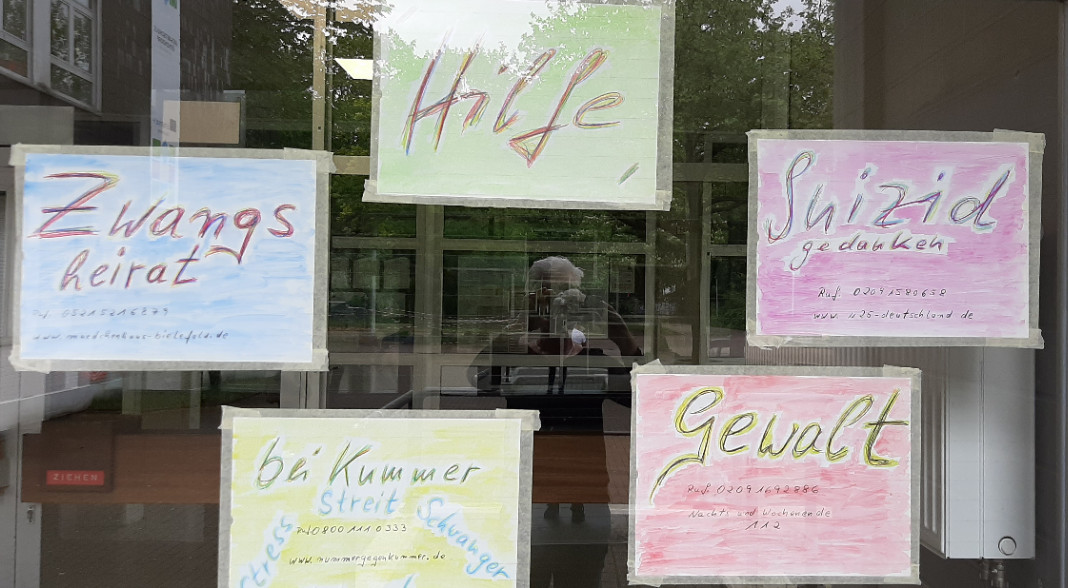 Hilfe
Zwangs
heirat
Ruf. 05215216879
www.maedchenhaus-bielefeld.de
Suizid
gedanken
Ruf. 02091580658
www.u25-deutschland.de
ZIEHEN
bei Kummer
Streit
Schwanger
Stress
Ruf 08001110333
www.nummergegenkummer.de
Gewalt
Ruf. 02091692886
Nachts und Wochenende
112